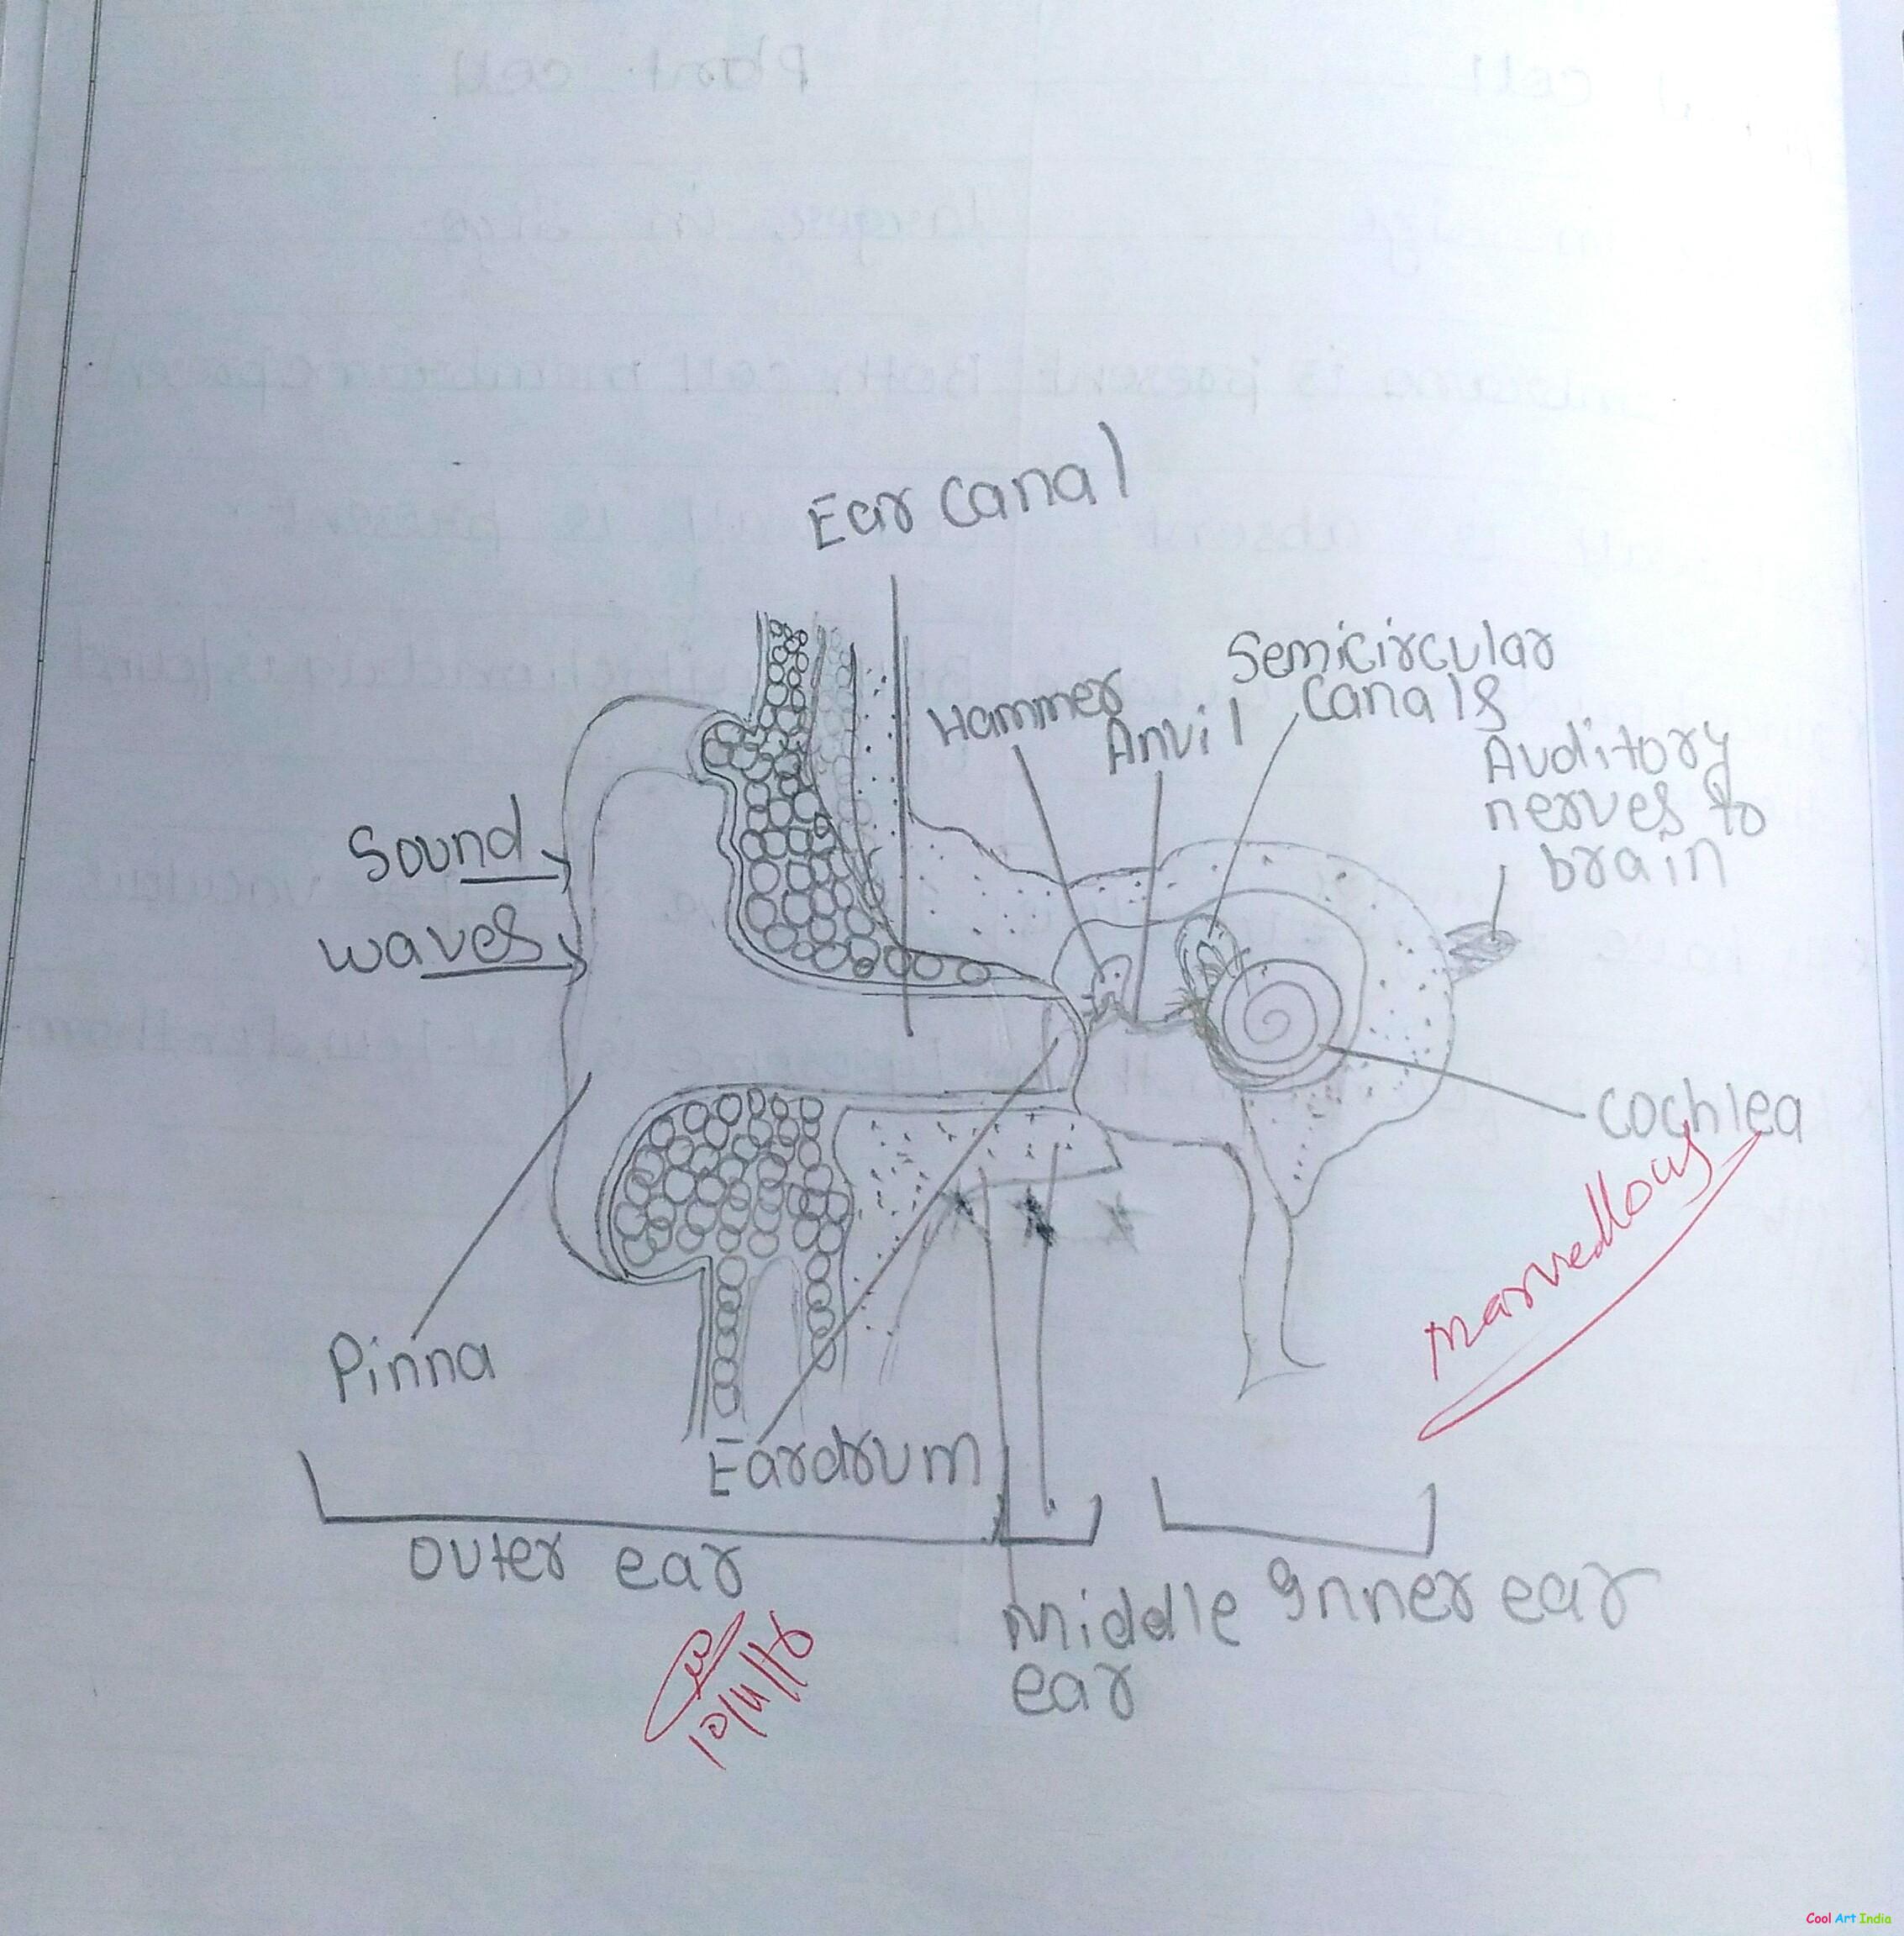 Ear canal
Semicircular
canals
Hammer
Anvil
Auditory
nerves to
brain
Sound
waves
cochlea
marvellous
Pinna
Eardrum
outer ear
Middle
ear
Inner ear
Cool Art India